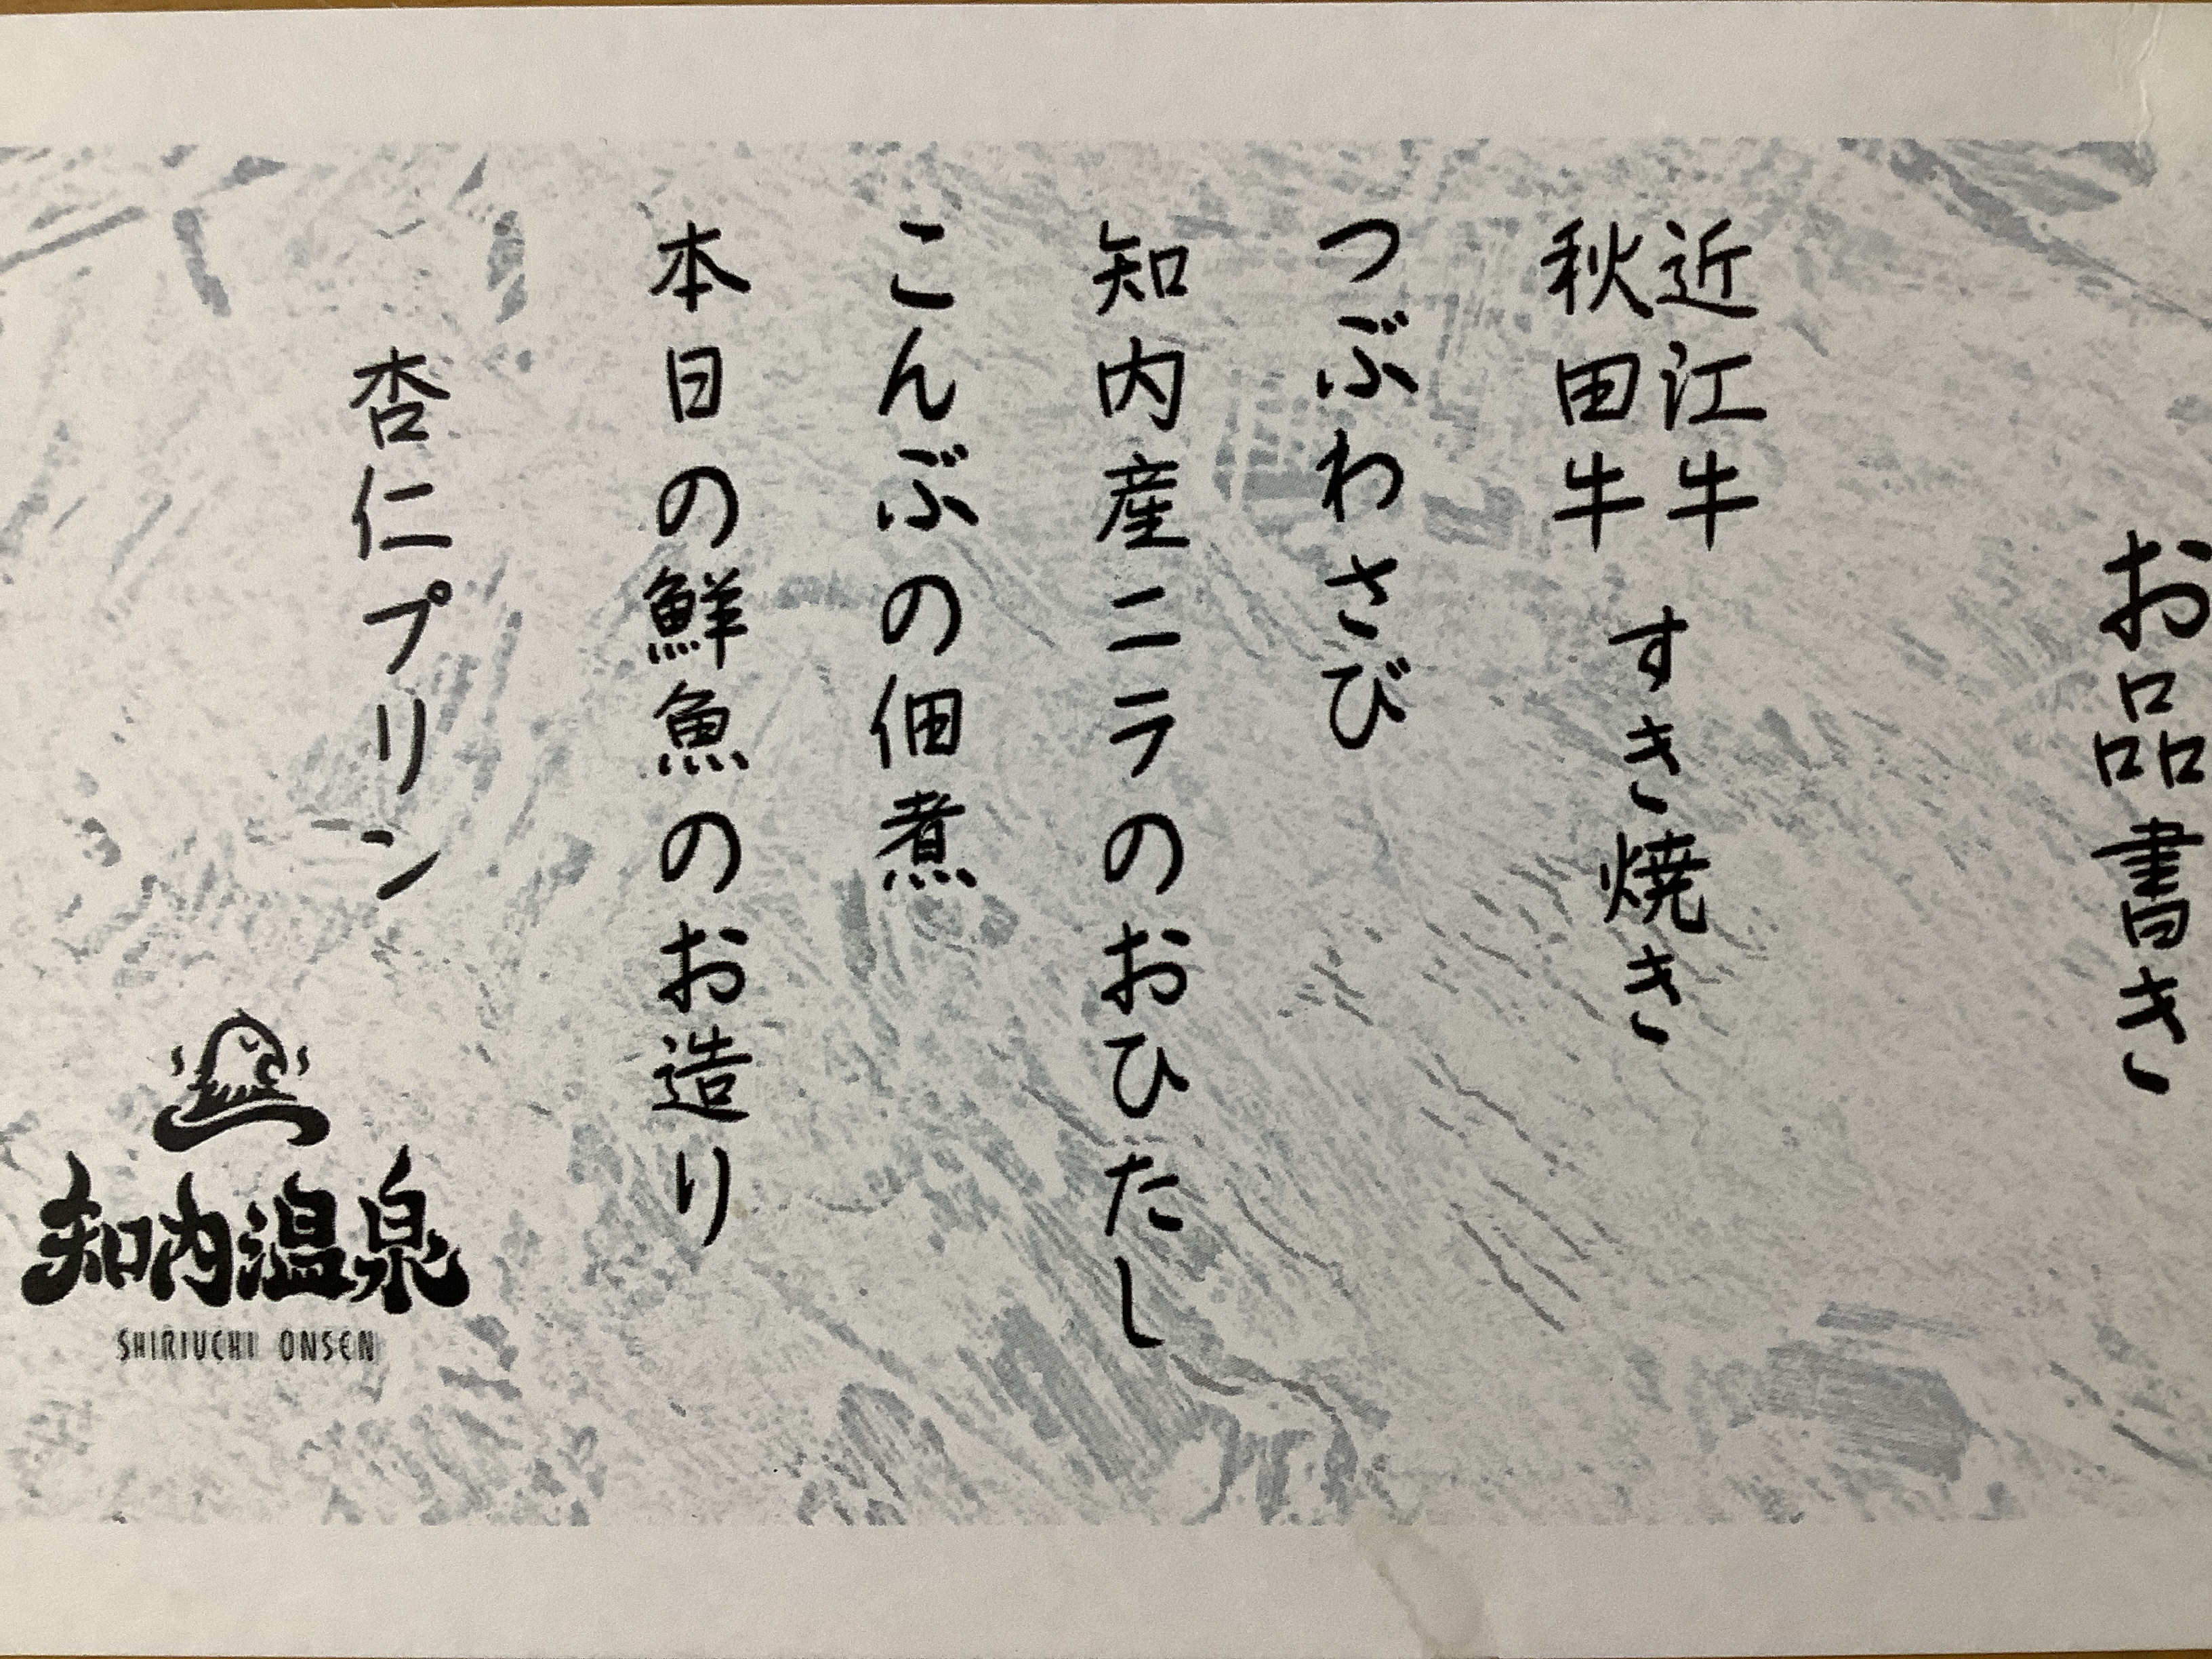 お品書き
近江牛
秋田牛
すき焼き
つぶわさび
知内産ニラのおひたし
こんぶの佃煮
本日の鮮魚のお造り
杏仁プリン
知内温泉
SHIRIUCHI ONSEN